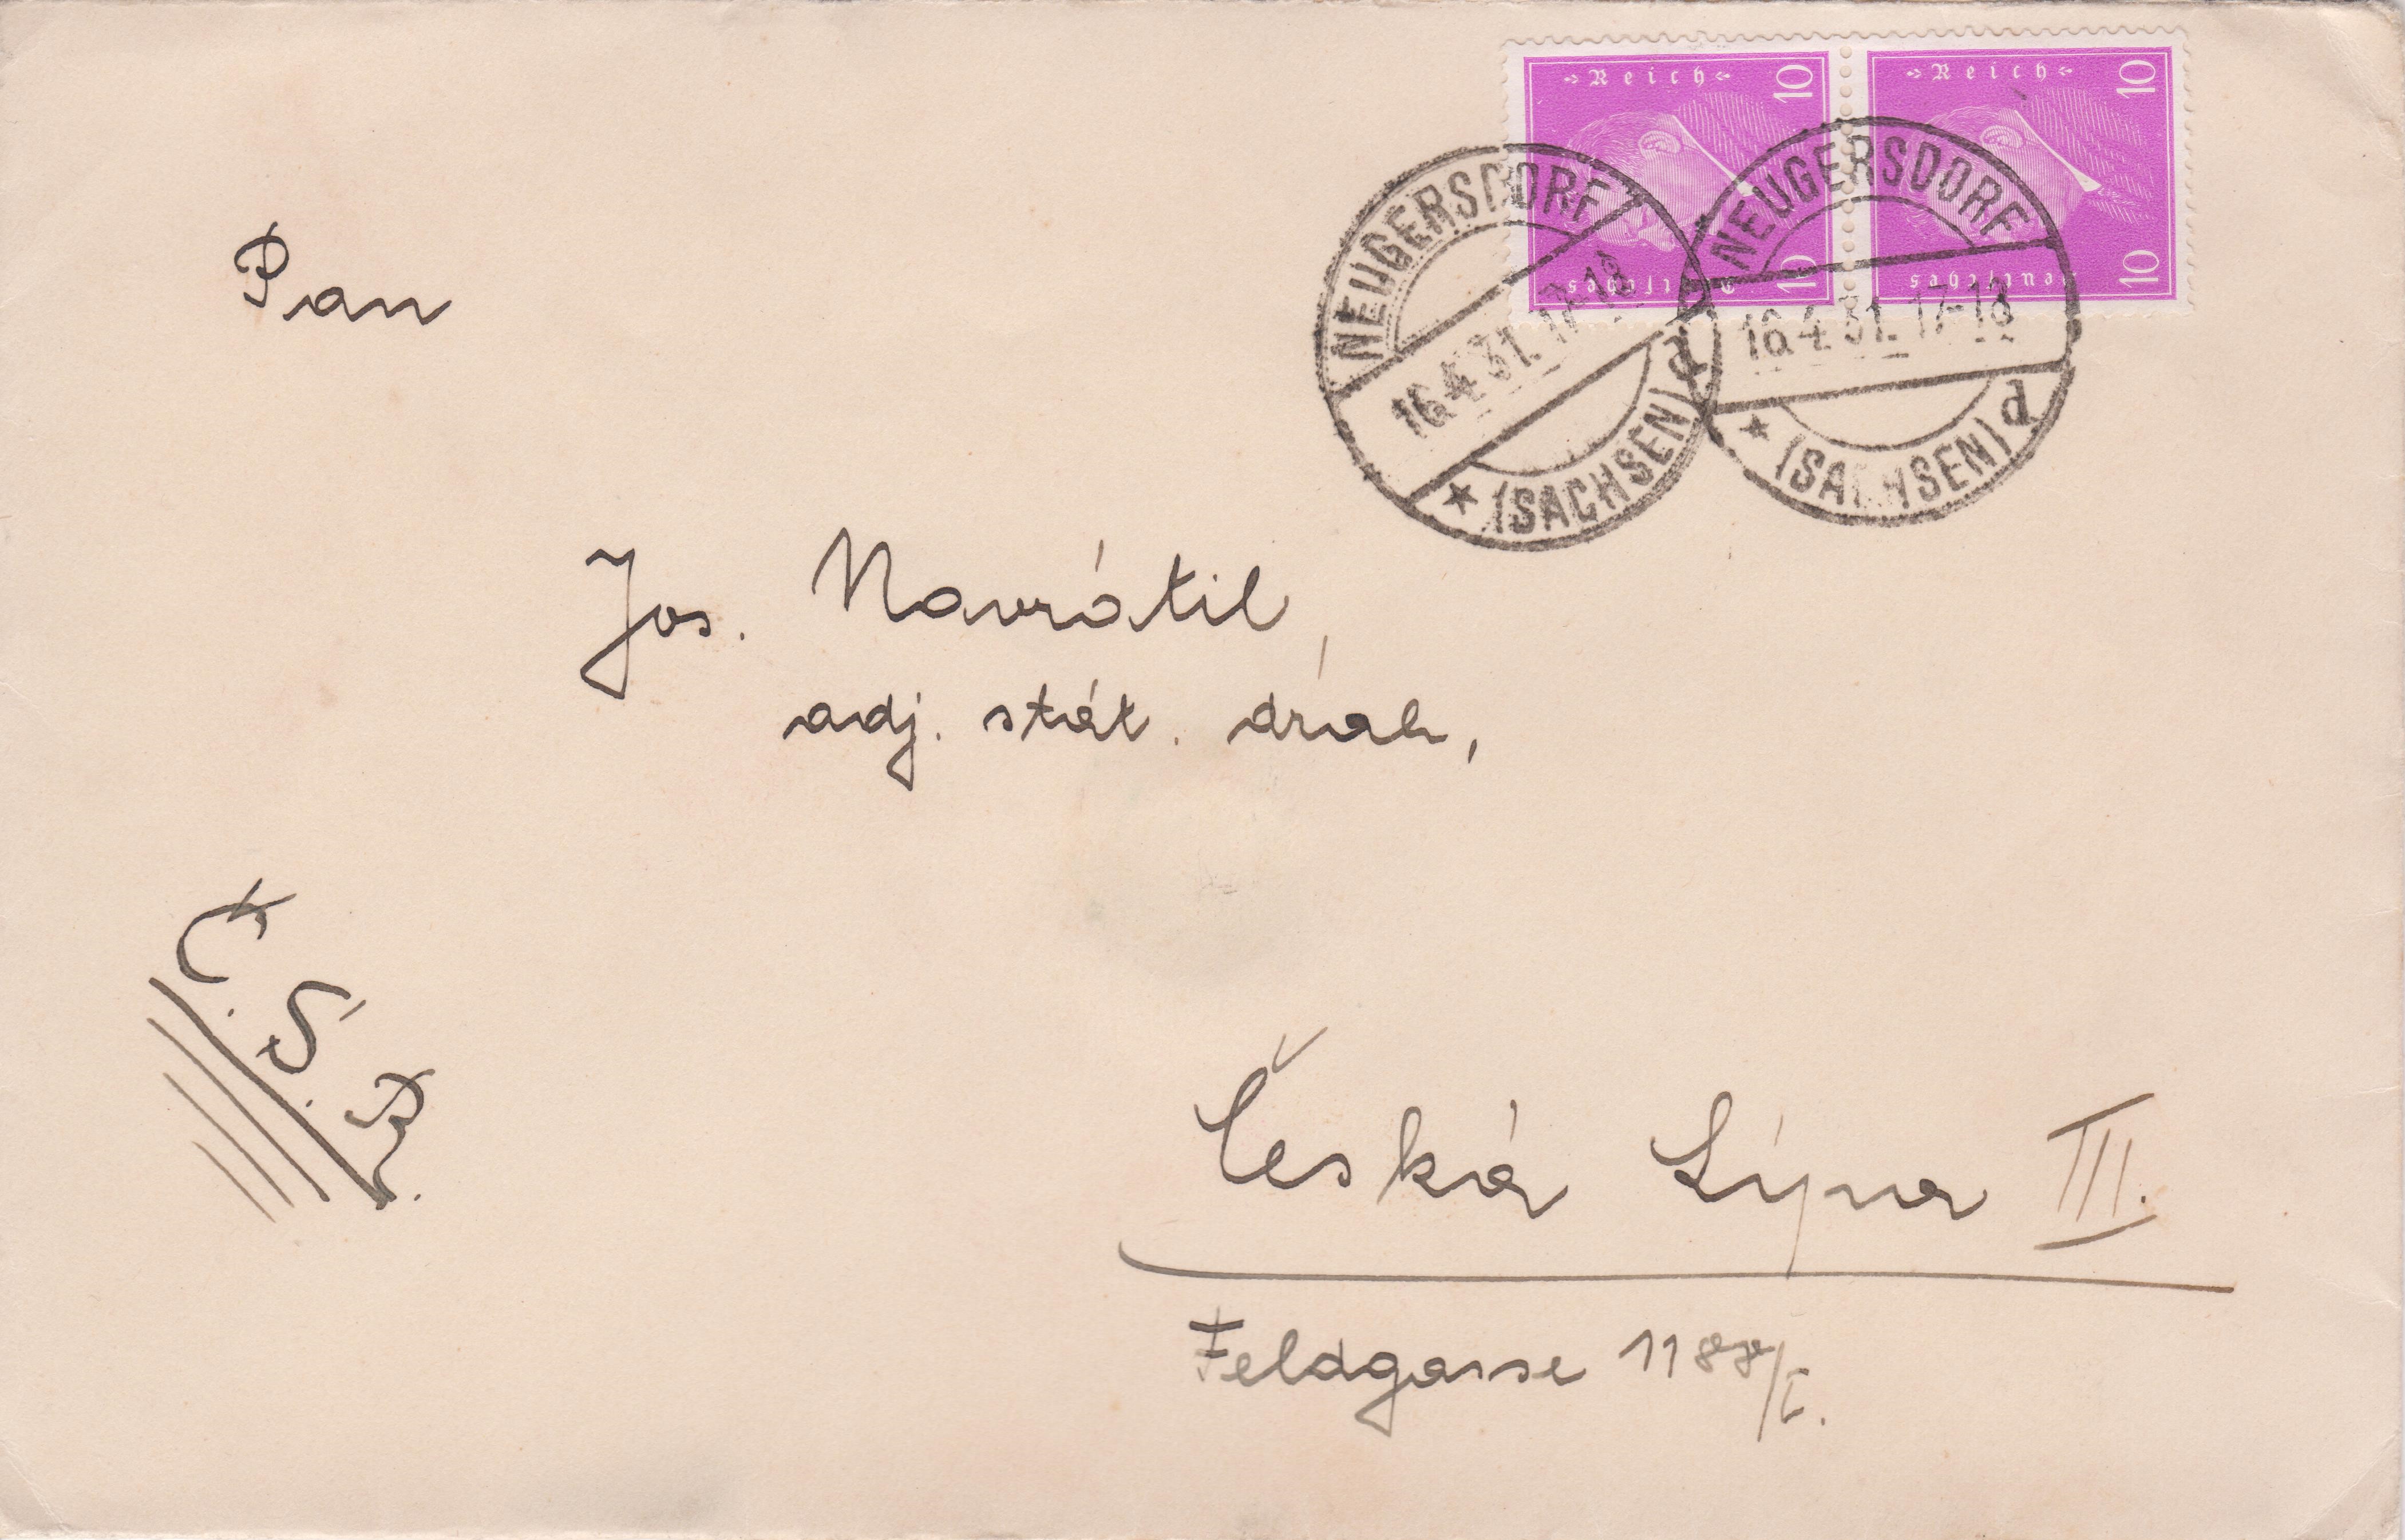 Reich 10
Reich 10
Deutsches 10
Deutsches 10
NEUGERSDORF
16.4.31. 17-18
* (SACHSEN) d
NEUGERSDORF
16.4.31. 17-18
* (SACHSEN) d
Pan
Jos. Navrátil,
adj. stát. drah,
Č.S.R.
Česká Lípa III.
Feldgasse 11